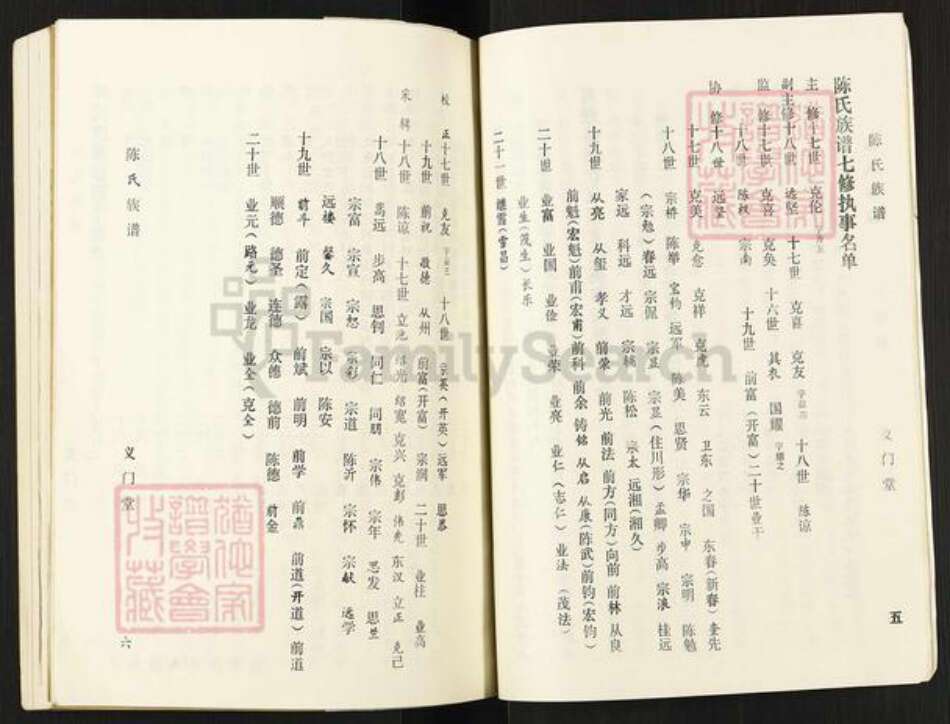 陈氏族谱
义门堂
五
陈氏族谱七修执事名单
主修十七世 克伦
副主修十八世 远坚 十七世 克喜 克友 字益三 十八世 陈谅
监修十七世 克喜 克奂 十六世 其 国耀 字耀之
十八世 陈 宗南 十九世 前富(开富)二十世业干
协修十八世 远坚
十七世 克美 克愈 克祥 克虎 东云 卫东 之国 东春(新春)奎先
十八世 宗桥 陈举 宝钧 远军 陈美 思贤 宗华 宗申 宗明 陈勉
(宗勉)春远 宗保 宗显 宗显(住川形)孟卿 步高 宗浪 桂远
家远 科远 才远 宗 陈松 宗太 远湘(湘久)
十九世 从亮 从玺 孝义 前荣 前光 前法 前方(同方)向前 前林 从良
前魁(宏魁)前甫(宏甫)前科 前余 铸铭 从启 从康(陈武)前钧(宏钧)
二十世 业富 业国 业俭 业荣 业亮 业仁(志仁) 业法(茂法)
业生(茂生)长乐
二十一世 继雪(雪昌)
校正十七世 克友 字益三 十八世 宗英(开英)远军 思恭
十九世 前祝 敬德 从州 前富(开富) 宗润 二十世 业柱 业高
采辑十八世 陈谅 十七世 立 绍光 绍宽 克兴 克彭 伟先 东汉 立正 克己
十八世 嵩远 步高 思钶 同仁 同明 宗伟 宗年 思发 思
宗富 宗宣 宗恕 宗彩 宗道 陈沂 宗怀 宗献 远学
远楼 馨久 宗国 宗以 陈安
十九世 前斗 前定(露) 前斌 前明 前学 前鼎 前道(开道)前道
顺德 德圣 连德 众德 德前 陈德 前金
二十世 业元(路元)业龙 业全(克全)
陈氏族谱
义门堂
六